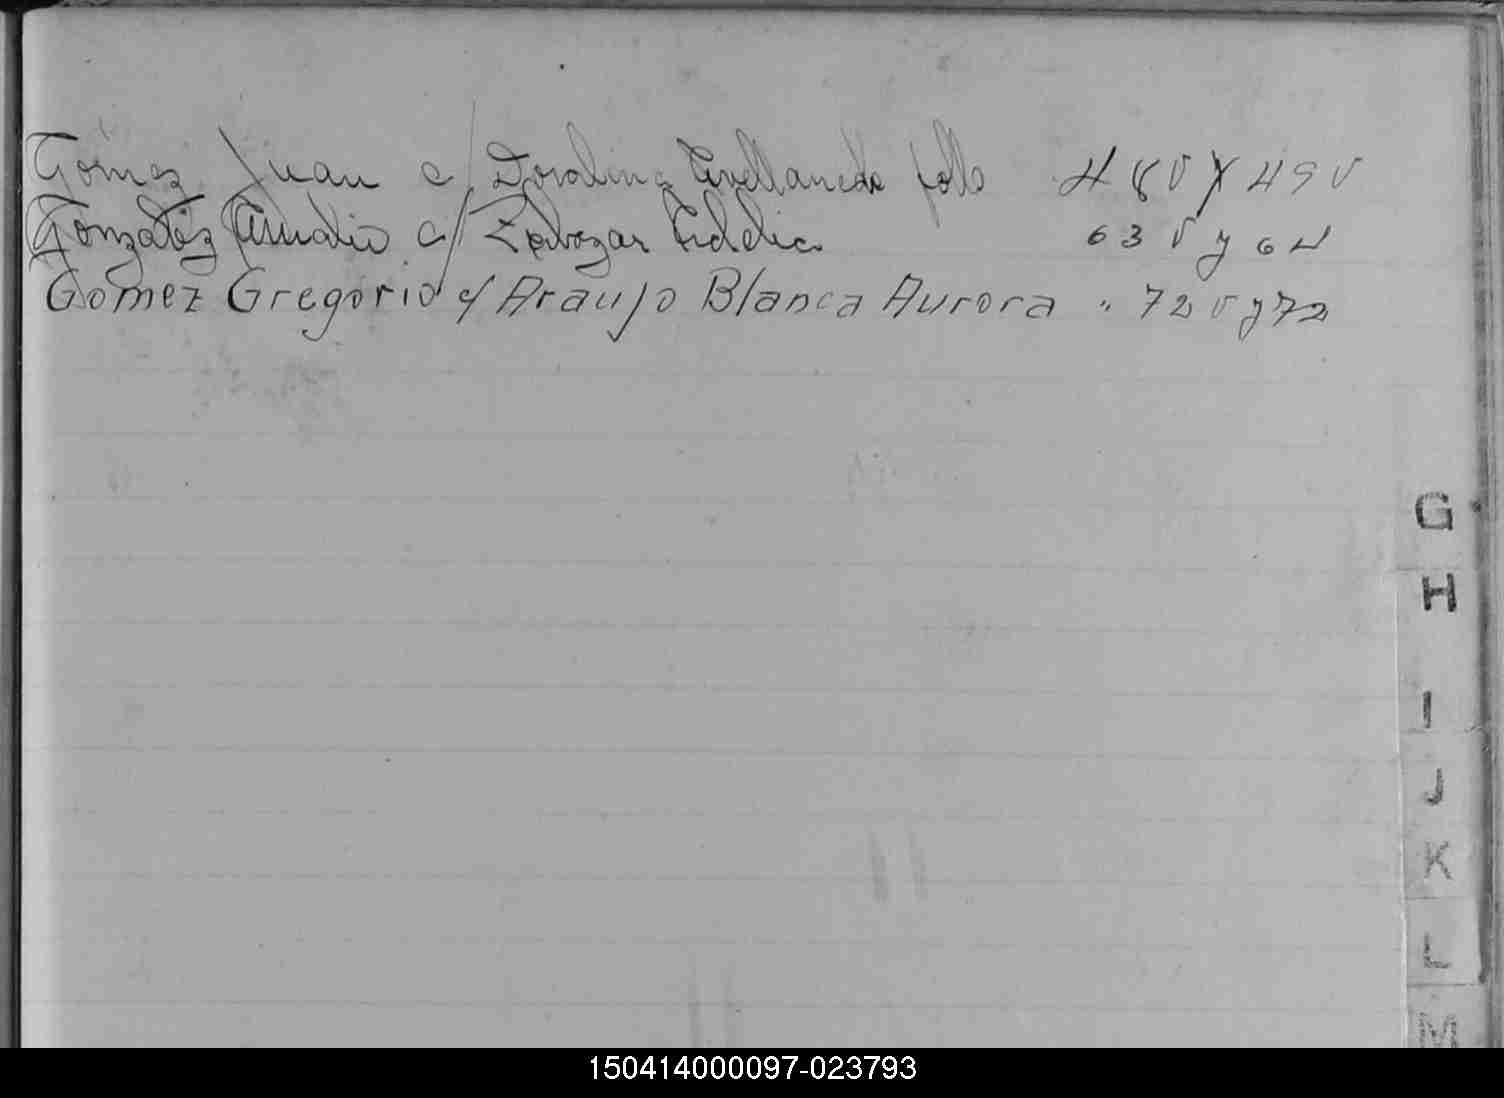 Gómez Juan c/ Doralina Avellaneda folio 48 v y 49 v
González Amadio c/ Salazar Eidelia 63 v y 64
Gomez Gregorio c/ Araujo Blanca Aurora " 72 v y 72
G
H
I
J
K
L
M
150414000097-023793